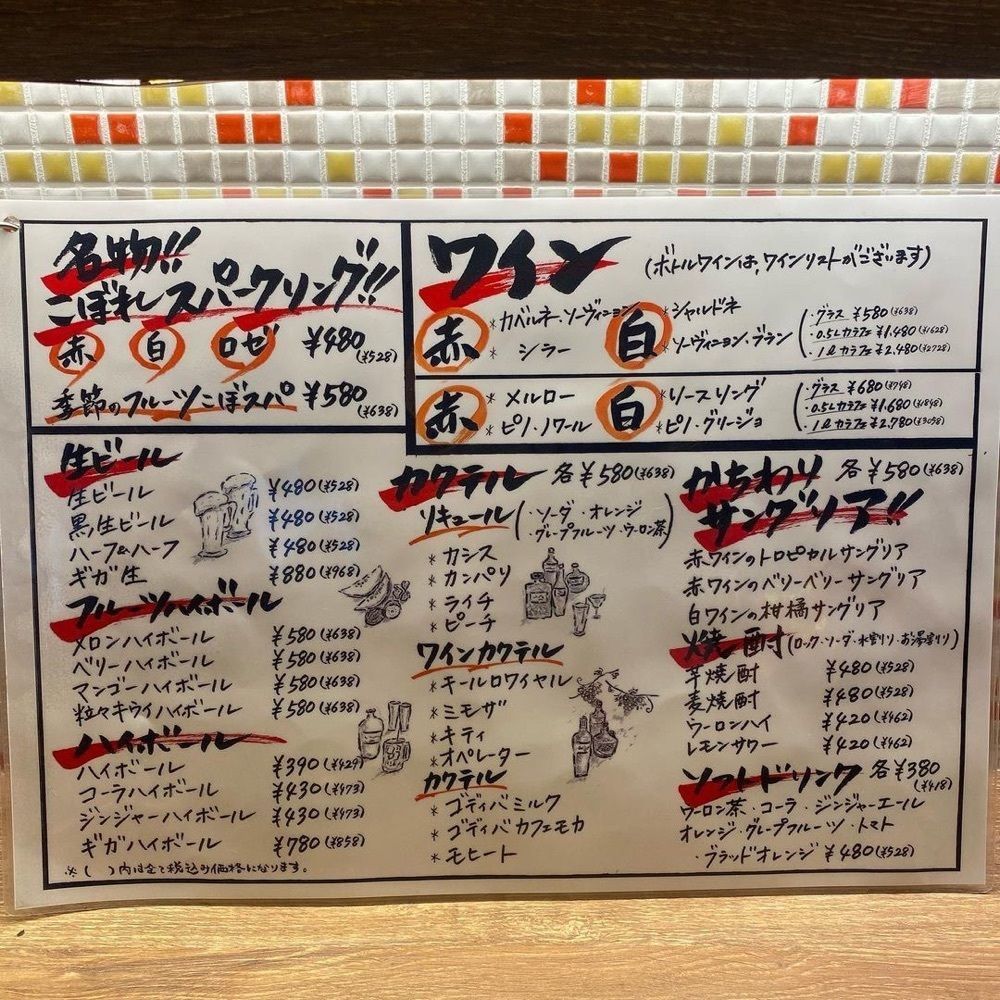 名物!!
こぼれスパークリング!!
赤 白 ロゼ ¥480(¥528)
季節のフルーツこぼスパ ¥580(¥638)
ワイン (ボトルワインは、ワインリストがございます)
赤 *カベルネ・ソーヴィニヨン *シラー
白 *シャルドネ *ソーヴィニヨン・ブラン
・グラス ¥580(¥638)
・0.5Lカラフェ ¥1,480(¥1628)
・1ℓカラフェ ¥2,480(¥2728)
赤 *メルロー *ピノ・ノワール
白 *リースリング *ピノ・グリージョ
・グラス ¥680(¥748)
・0.5Lカラフェ ¥1,680(¥1848)
・1ℓカラフェ ¥2,780(¥3058)
生ビール
生ビール ¥480(¥528)
黒生ビール ¥480(¥528)
ハーフ&ハーフ ¥480(¥528)
ギガ生 ¥880(¥968)
フルーツハイボール
メロンハイボール ¥580(¥638)
ベリーハイボール ¥580(¥638)
マンゴーハイボール ¥580(¥638)
粒々キウイハイボール ¥580(¥638)
ハイボール
ハイボール ¥390(¥429)
コーラハイボール ¥430(¥473)
ジンジャーハイボール ¥430(¥473)
ギガハイボール ¥780(¥858)
※( )内は全て税込み価格になります。
カクテル 各¥580(¥638)
リキュール (・ソーダ ・オレンジ
・グレープフルーツ・ウーロン茶)
*カシス
*カンパリ
*ライチ
*ピーチ
ワインカクテル
*キールロワイヤル
*ミモザ
*キティ
*オペレーター
カクテル
*ゴディバミルク
*ゴディバカフェモカ
*モヒート
かちわり 各¥580(¥638)
サングリア!!
赤ワインのトロピカルサングリア
赤ワインのベリーベリーサングリア
白ワインの柑橘サングリア
焼酎(ロック・ソーダ・水割り・お湯割り)
芋焼酎 ¥480(¥528)
麦焼酎 ¥480(¥528)
ウーロンハイ ¥420(¥462)
レモンサワー ¥420(¥462)
ソフトドリンク 各¥380(¥418)
ウーロン茶・コーラ・ジンジャーエール
オレンジ・グレープフルーツ・トマト
・ブラッドオレンジ ¥480(¥528)